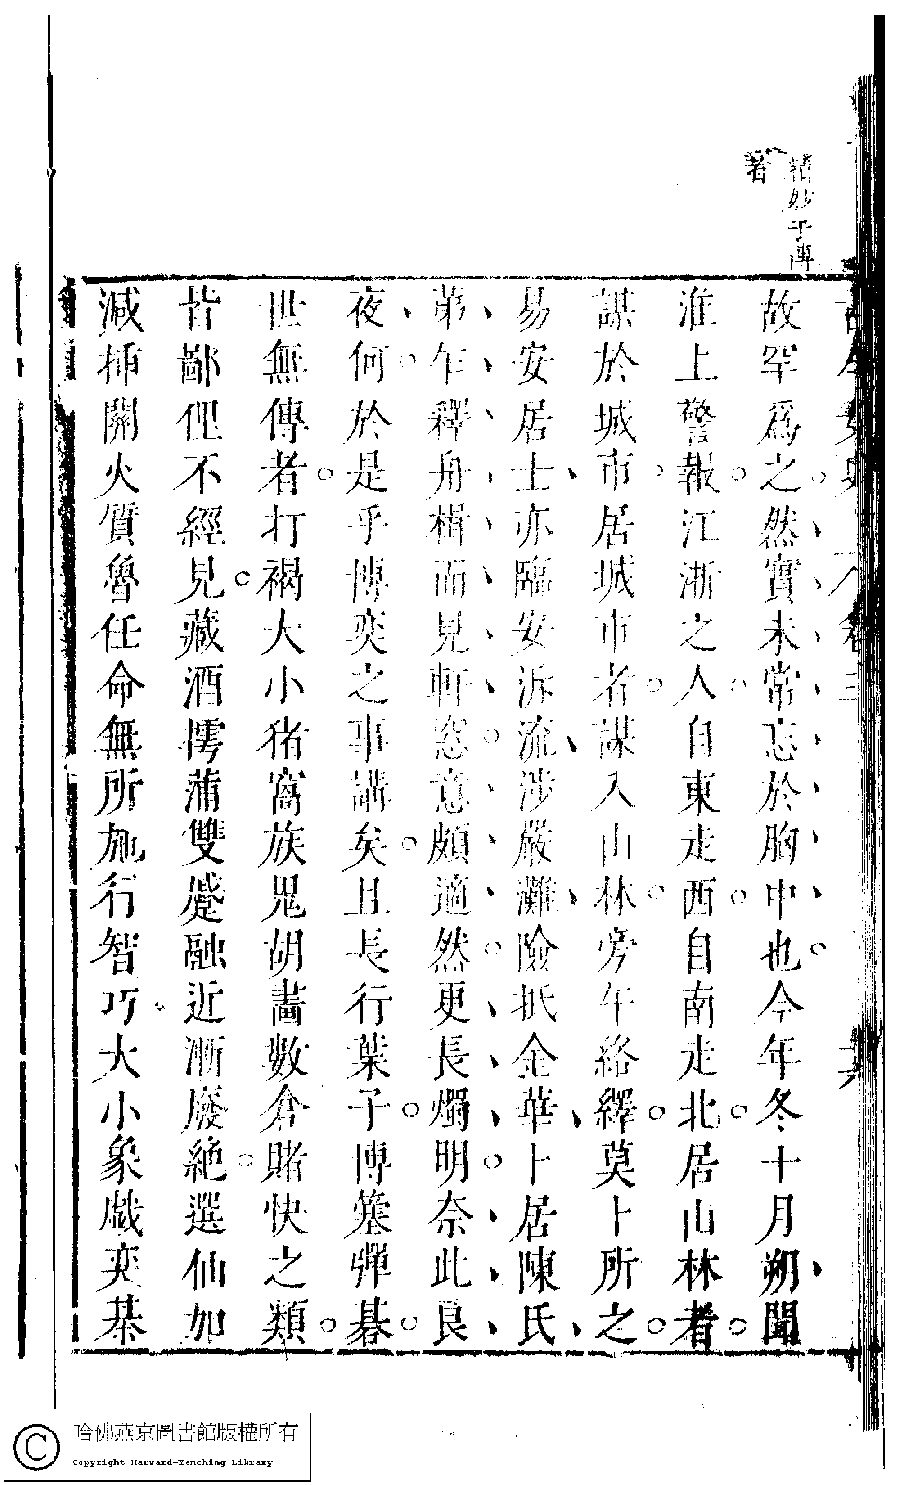 精妙于博
者
故罕爲之然實未常忘於胸中也今年冬十月朔聞
淮上警報江浙之人自東走西自南走北居山林者
謀於城市居城市者謀入山林旁午絡繹莫卜所之
易安居士亦臨安泝流涉嚴灘險抵金華卜居陳氏
第乍釋舟楫而見軒窓意頗適然更長燭明奈此良
夜何於是乎博奕之事講矣且長行葉子博簺彈棊
世無傳者打褐大小猪窩族鬼胡畫數倉賭快之類
皆鄙俚不經見藏酒摴蒲雙蹙融近漸廢絶選仙加
減揷關火質魯任命無所施行智巧大小象戯奕棊
卷三
哈佛燕京圖書館版權所有
Copyright Harvard-Yenching Library